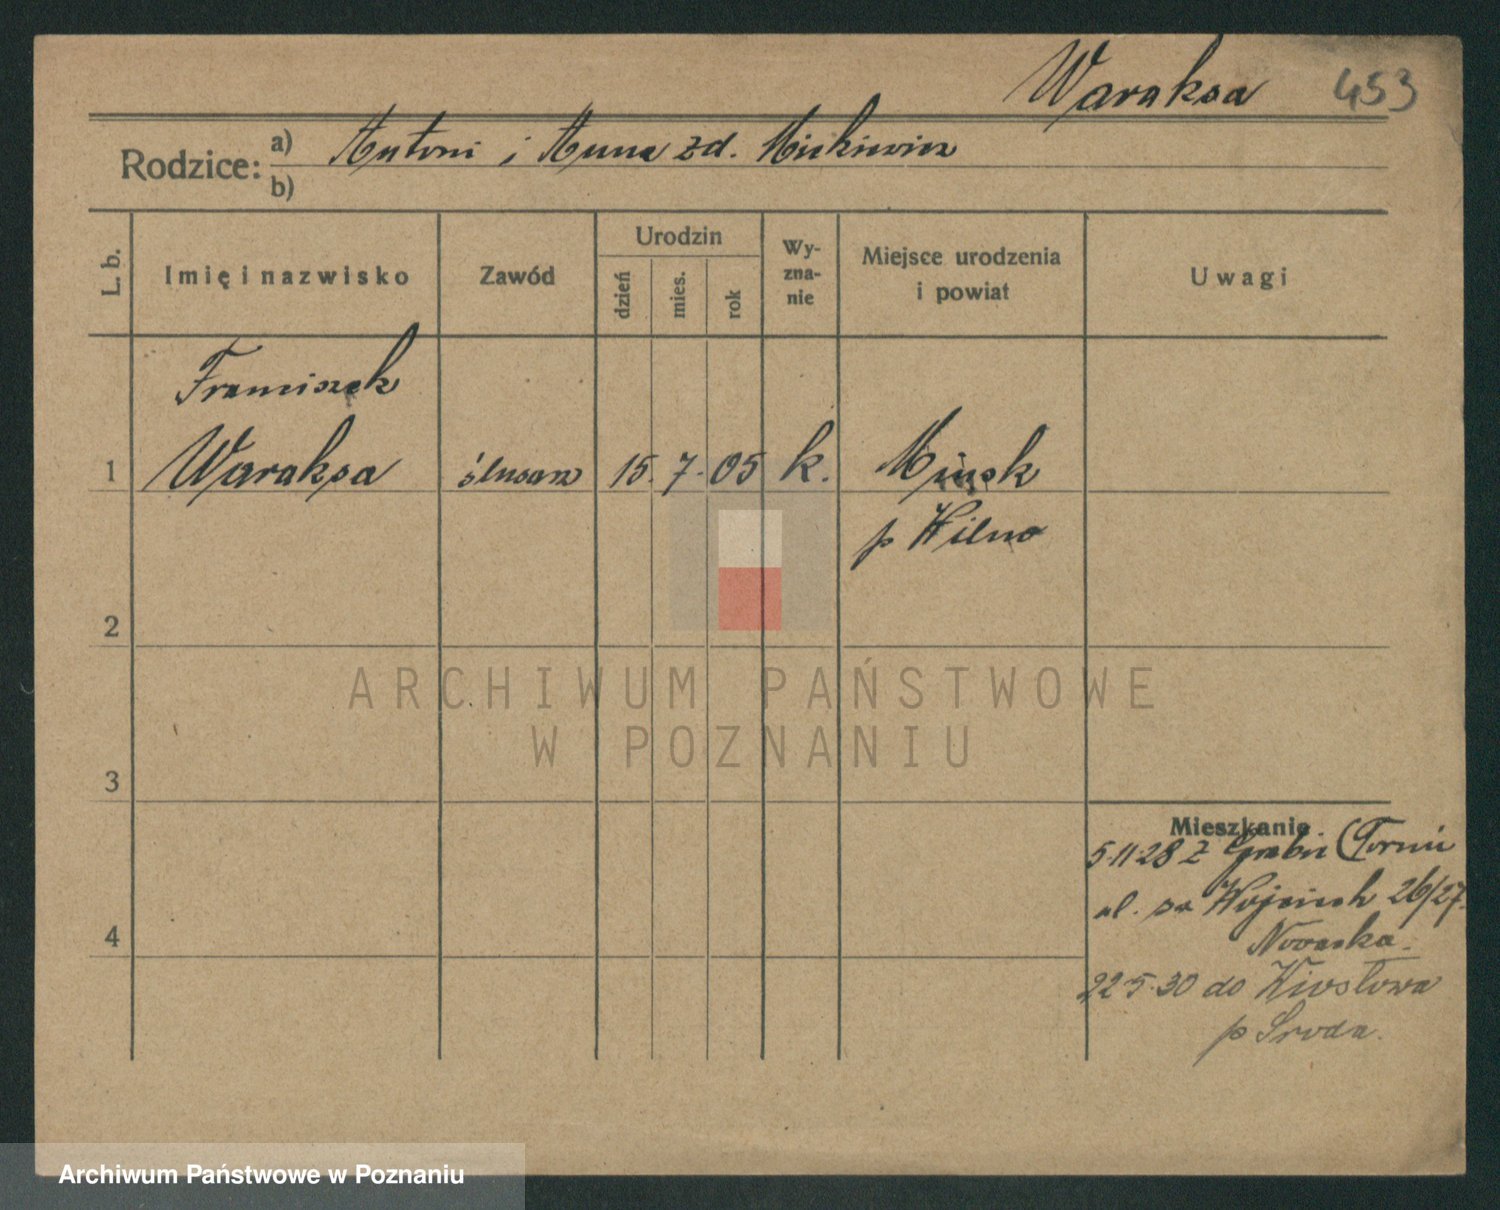 Waraksa 453
Rodzice: a) Antoni i Anna zd. Mickiewicz
b)
L. b. Imię i nazwisko Zawód Urodzin dzień mies. rok Wy-zna-nie Miejsce urodzenia i powiat Uwagi
Franciszek
1 Waraksa ślusarz 15. 7. 05 k. Mińsk
p Wilno
2
ARCHIWUM PAŃSTWOWE
W POZNANIU
3
Mieszkanie
5.11.28 z (Toruń
ul. św Wojciech 26/27.
Nowaska.
4
22.5.30 do
p Środa.
Archiwum Państwowe w Poznaniu